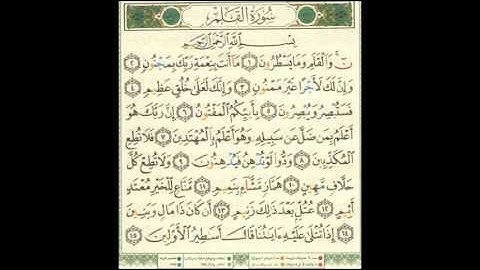 سُورَةُ القَلَمِ
بِسْمِ اللَّهِ الرَّحْمَٰنِ الرَّحِيمِ
نٓ ۚ وَالْقَلَمِ وَمَا يَسْطُرُونَ ﴿١﴾ مَا أَنتَ بِنِعْمَةِ رَبِّكَ بِمَجْنُونٍ ﴿٢﴾
وَإِنَّ لَكَ لَأَجْرًا غَيْرَ مَمْنُونٍ ﴿٣﴾ وَإِنَّكَ لَعَلَىٰ خُلُقٍ عَظِيمٍ ﴿٤﴾
فَسَتُبْصِرُ وَيُبْصِرُونَ ﴿٥﴾ بِأَييِّكُمُ الْمَفْتُونُ ﴿٦﴾ إِنَّ رَبَّكَ هُوَ
أَعْلَمُ بِمَن ضَلَّ عَن سَبِيلِهِ وَهُوَ أَعْلَمُ بِالْمُهْتَدِينَ ﴿٧﴾ فَلَا تُطِعِ
الْمُكَذِّبِينَ ﴿٨﴾ وَدُّوا لَوْ تُدْهِنُ فَيُدْهِنُونَ ﴿٩﴾ وَلَا تُطِعْ كُلَّ
حَلَّافٍ مَّهِينٍ ﴿١٠﴾ هَمَّازٍ مَّشَّاءٍ بِنَمِيمٍ ﴿١١﴾ مَّنَّاعٍ لِّلْخَيْرِ مُعْتَدٍ
أَثِيمٍ ﴿١٢﴾ عُتُلٍّ بَعْدَ ذَٰلِكَ زَنِيمٍ ﴿١٣﴾ أَن كَانَ ذَا مَالٍ وَبَنِينَ
﴿١٤﴾ إِذَا تُتْلَىٰ عَلَيْهِ ءَايَاتُنَا قَالَ أَسَاطِيرُ الْأَوَّلِينَ ﴿١٥﴾